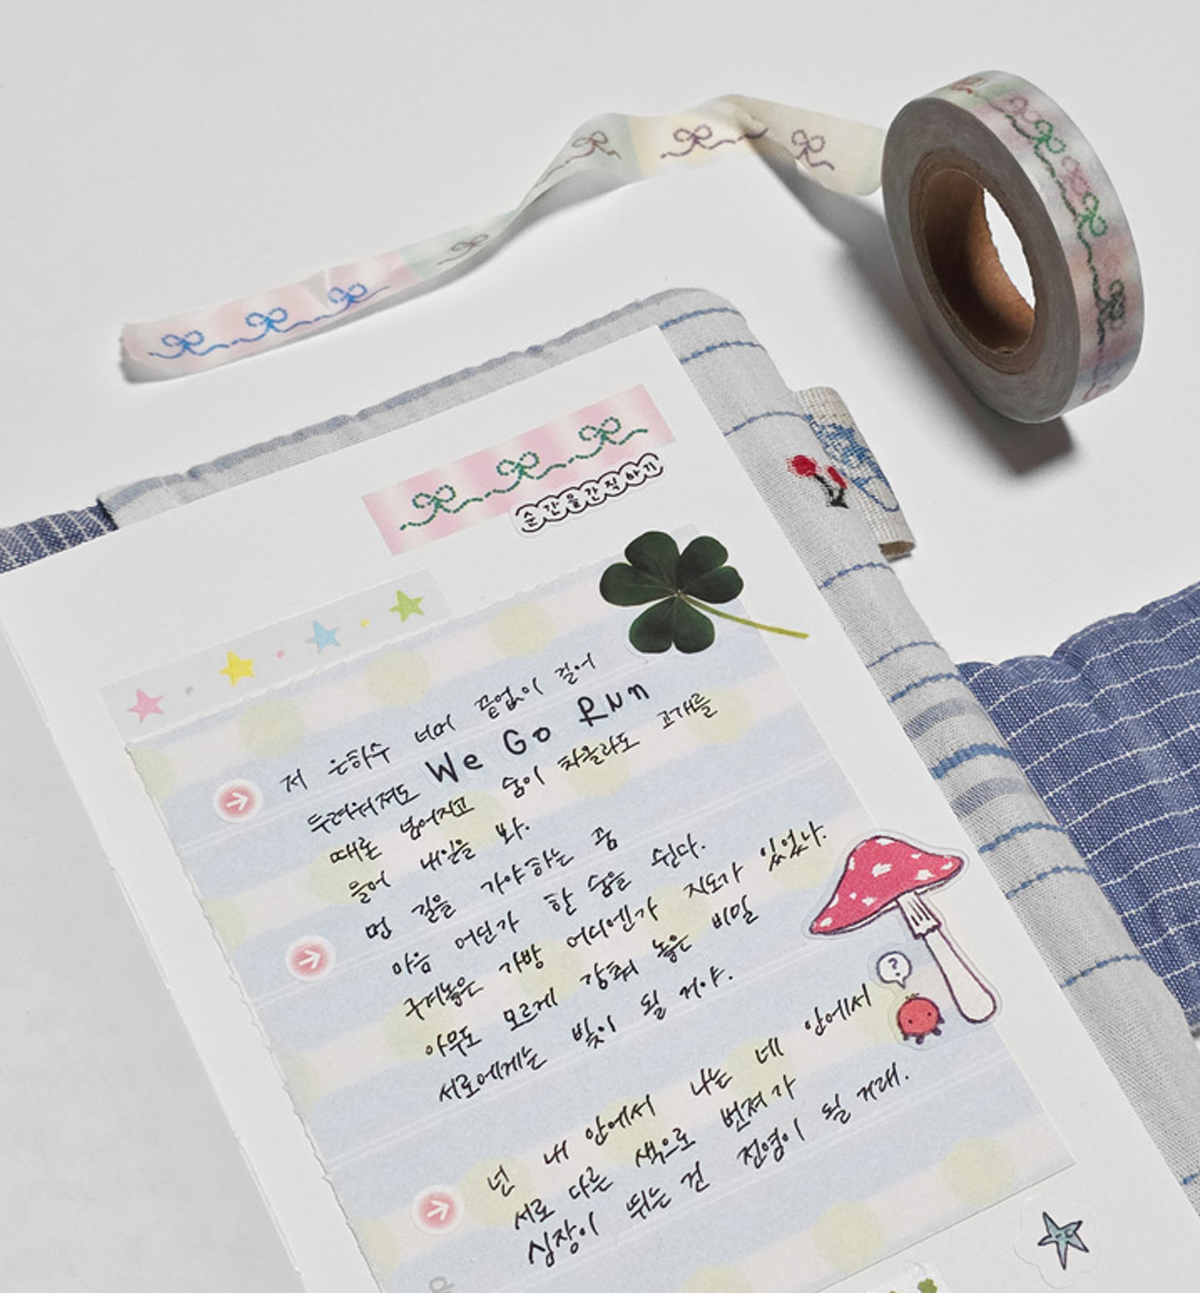 순간을간직하기
저 은하수 너머 끝없이 걸어
두려워져도 We Go Run
때론 넘어지고 숨이 차올라도 고개를
들어 내일을 봐.
먼 길을 가야하는 꿈
마음 어딘가 한 숨을 쉰다.
구겨놓은 가방 어디엔가 지도가 있었나.
아무도 모르게 감춰 놓은 비밀
서로에게는 빛이 될 거야.
?
넌 내 안에서 나는 네 안에서
서로 다른 색으로 번져가
심장이 뛰는 건 전영이 될 거래.